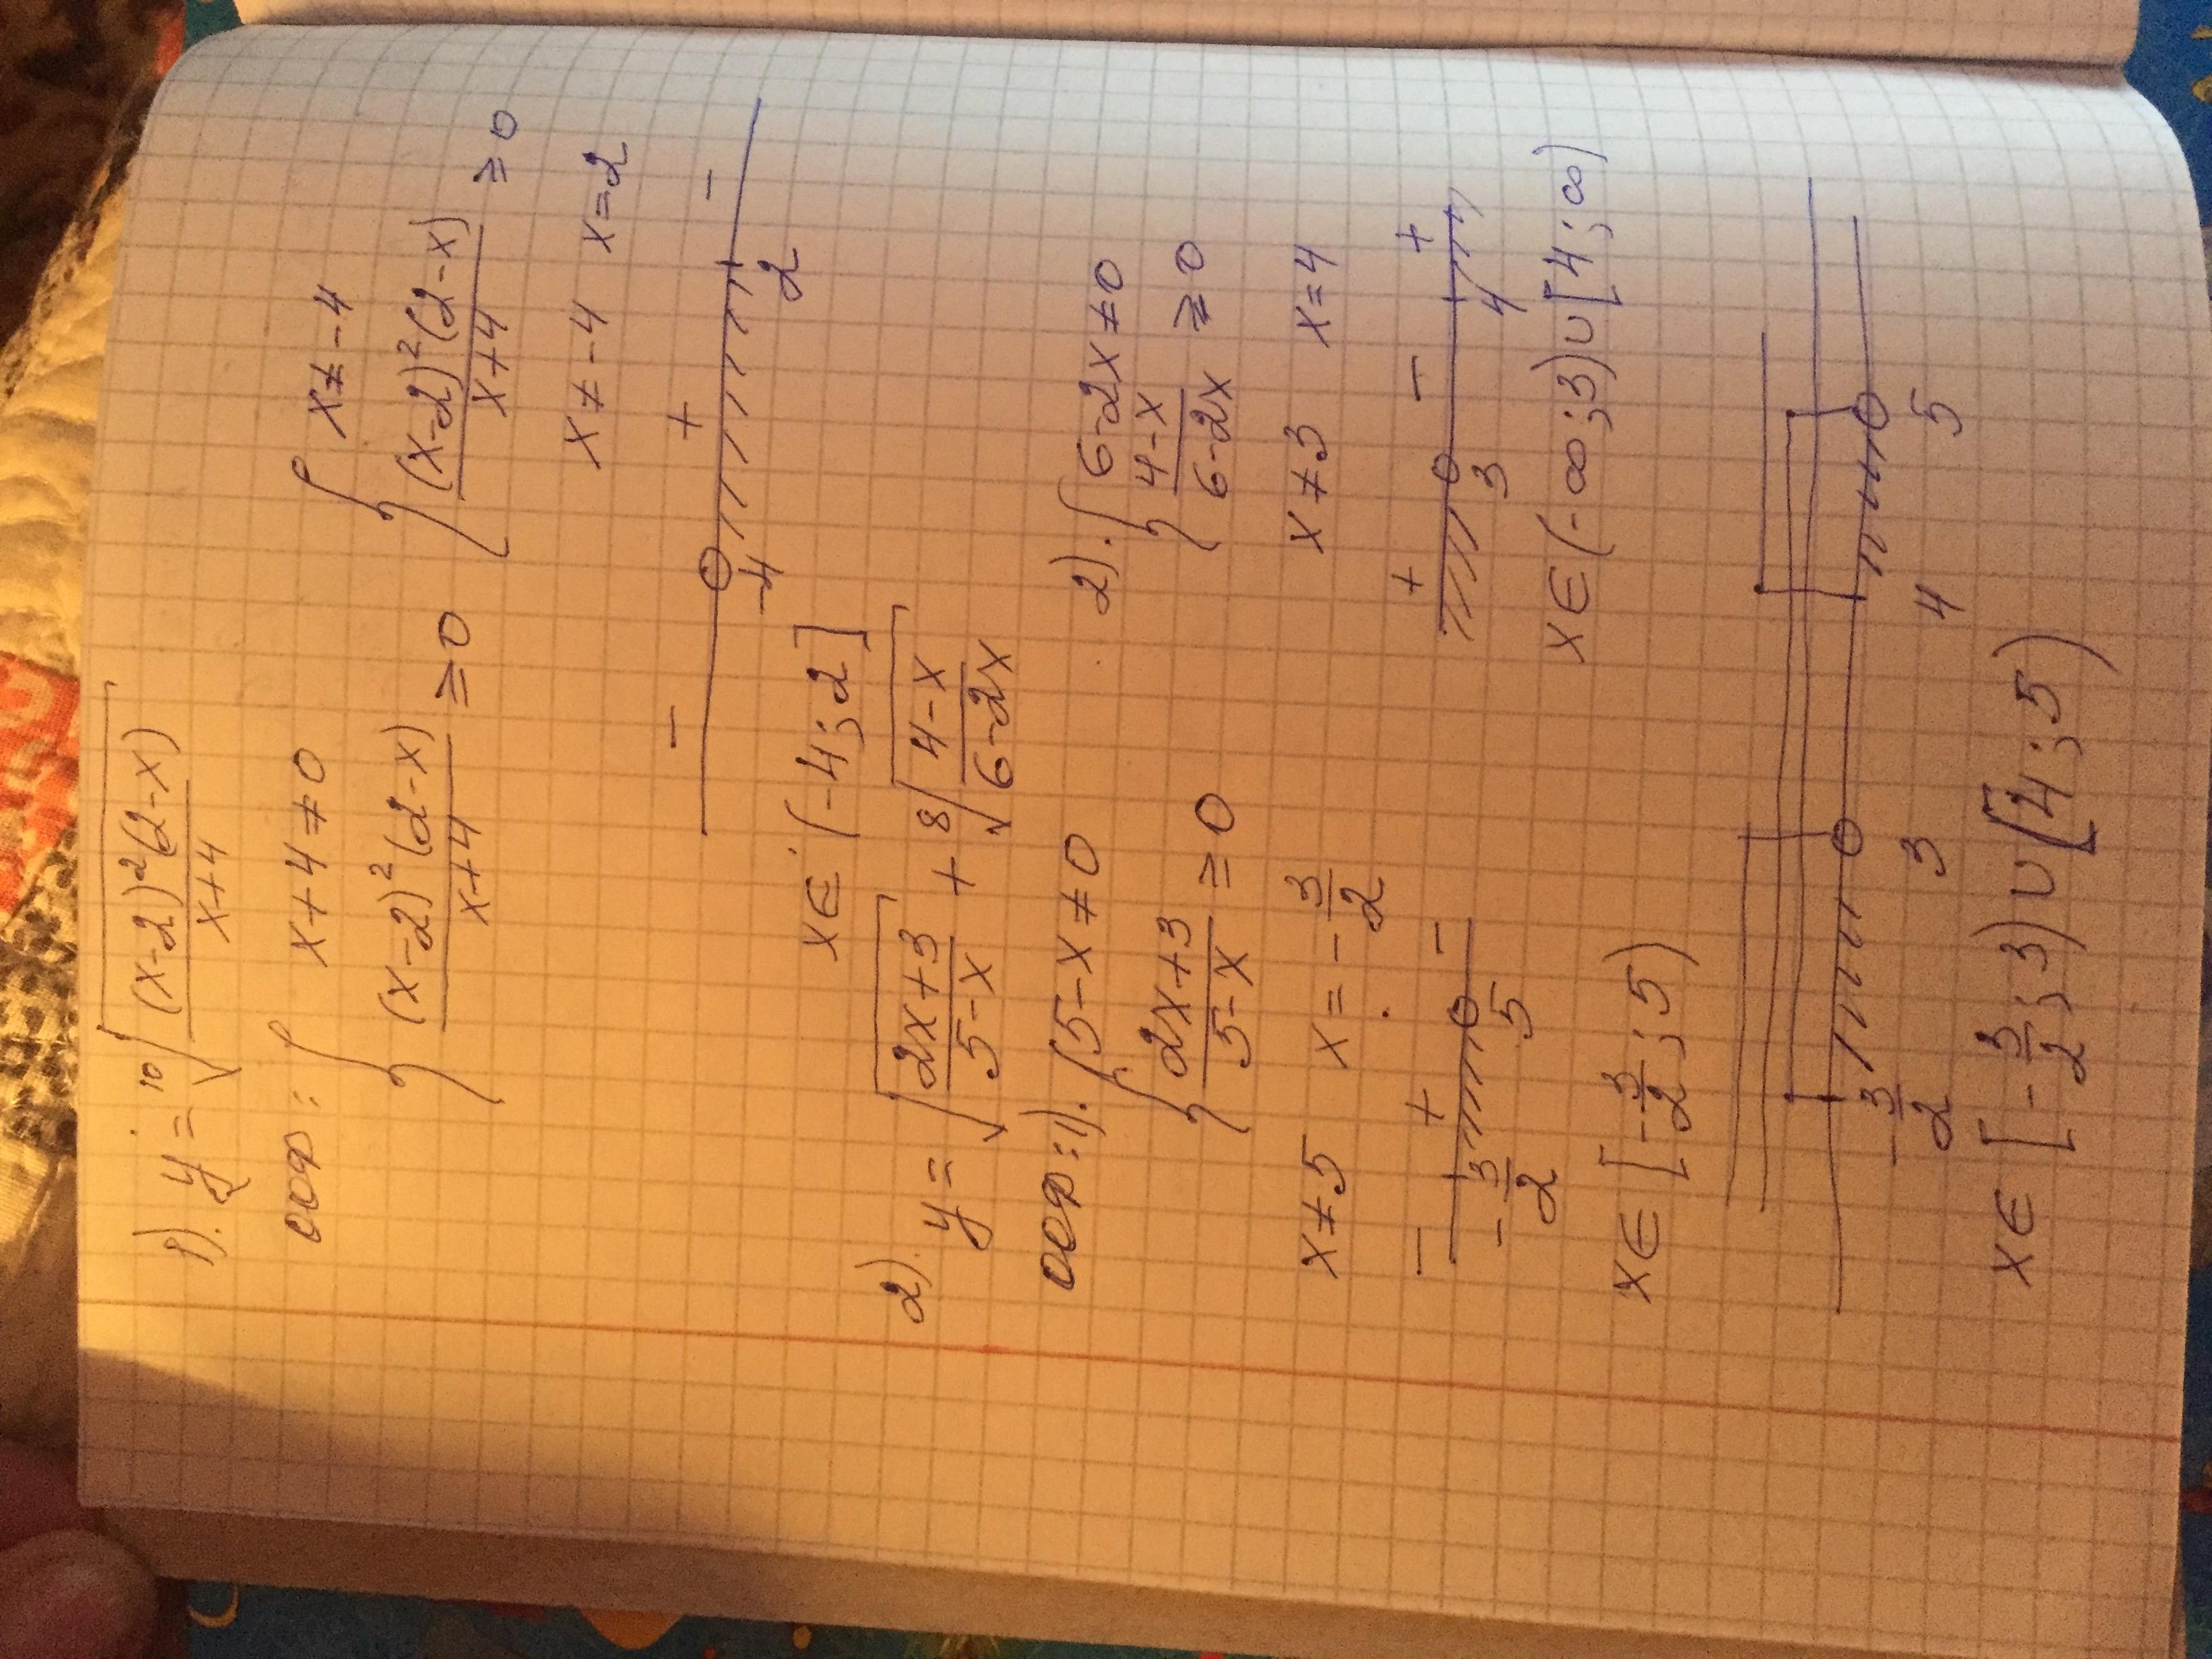 1). y = ¹⁰√((x-2)²(2-x)/(x+4))
ООФ: { x+4 ≠ 0 { x ≠ -4
(x-2)²(2-x)/(x+4) ≥ 0 (x-2)²(2-x)/(x+4) ≥ 0
x ≠ -4 x = 2
- + -
-4 2
x ∈ (-4; 2]
2). y = √((2x+3)/(5-x)) + ⁸√((4-x)/(6-2x))
ООФ: 1). { 5-x ≠ 0 2). { 6-2x ≠ 0
(2x+3)/(5-x) ≥ 0 (4-x)/(6-2x) ≥ 0
x ≠ 5 x = -3/2 x ≠ 3 x = 4
- + - + - +
-3/2 5 3 4
x ∈ [-3/2; 5) x ∈ (-∞; 3) ∪ [4; ∞)
-3/2 3 4 5
x ∈ [-3/2; 3) ∪ [4; 5)